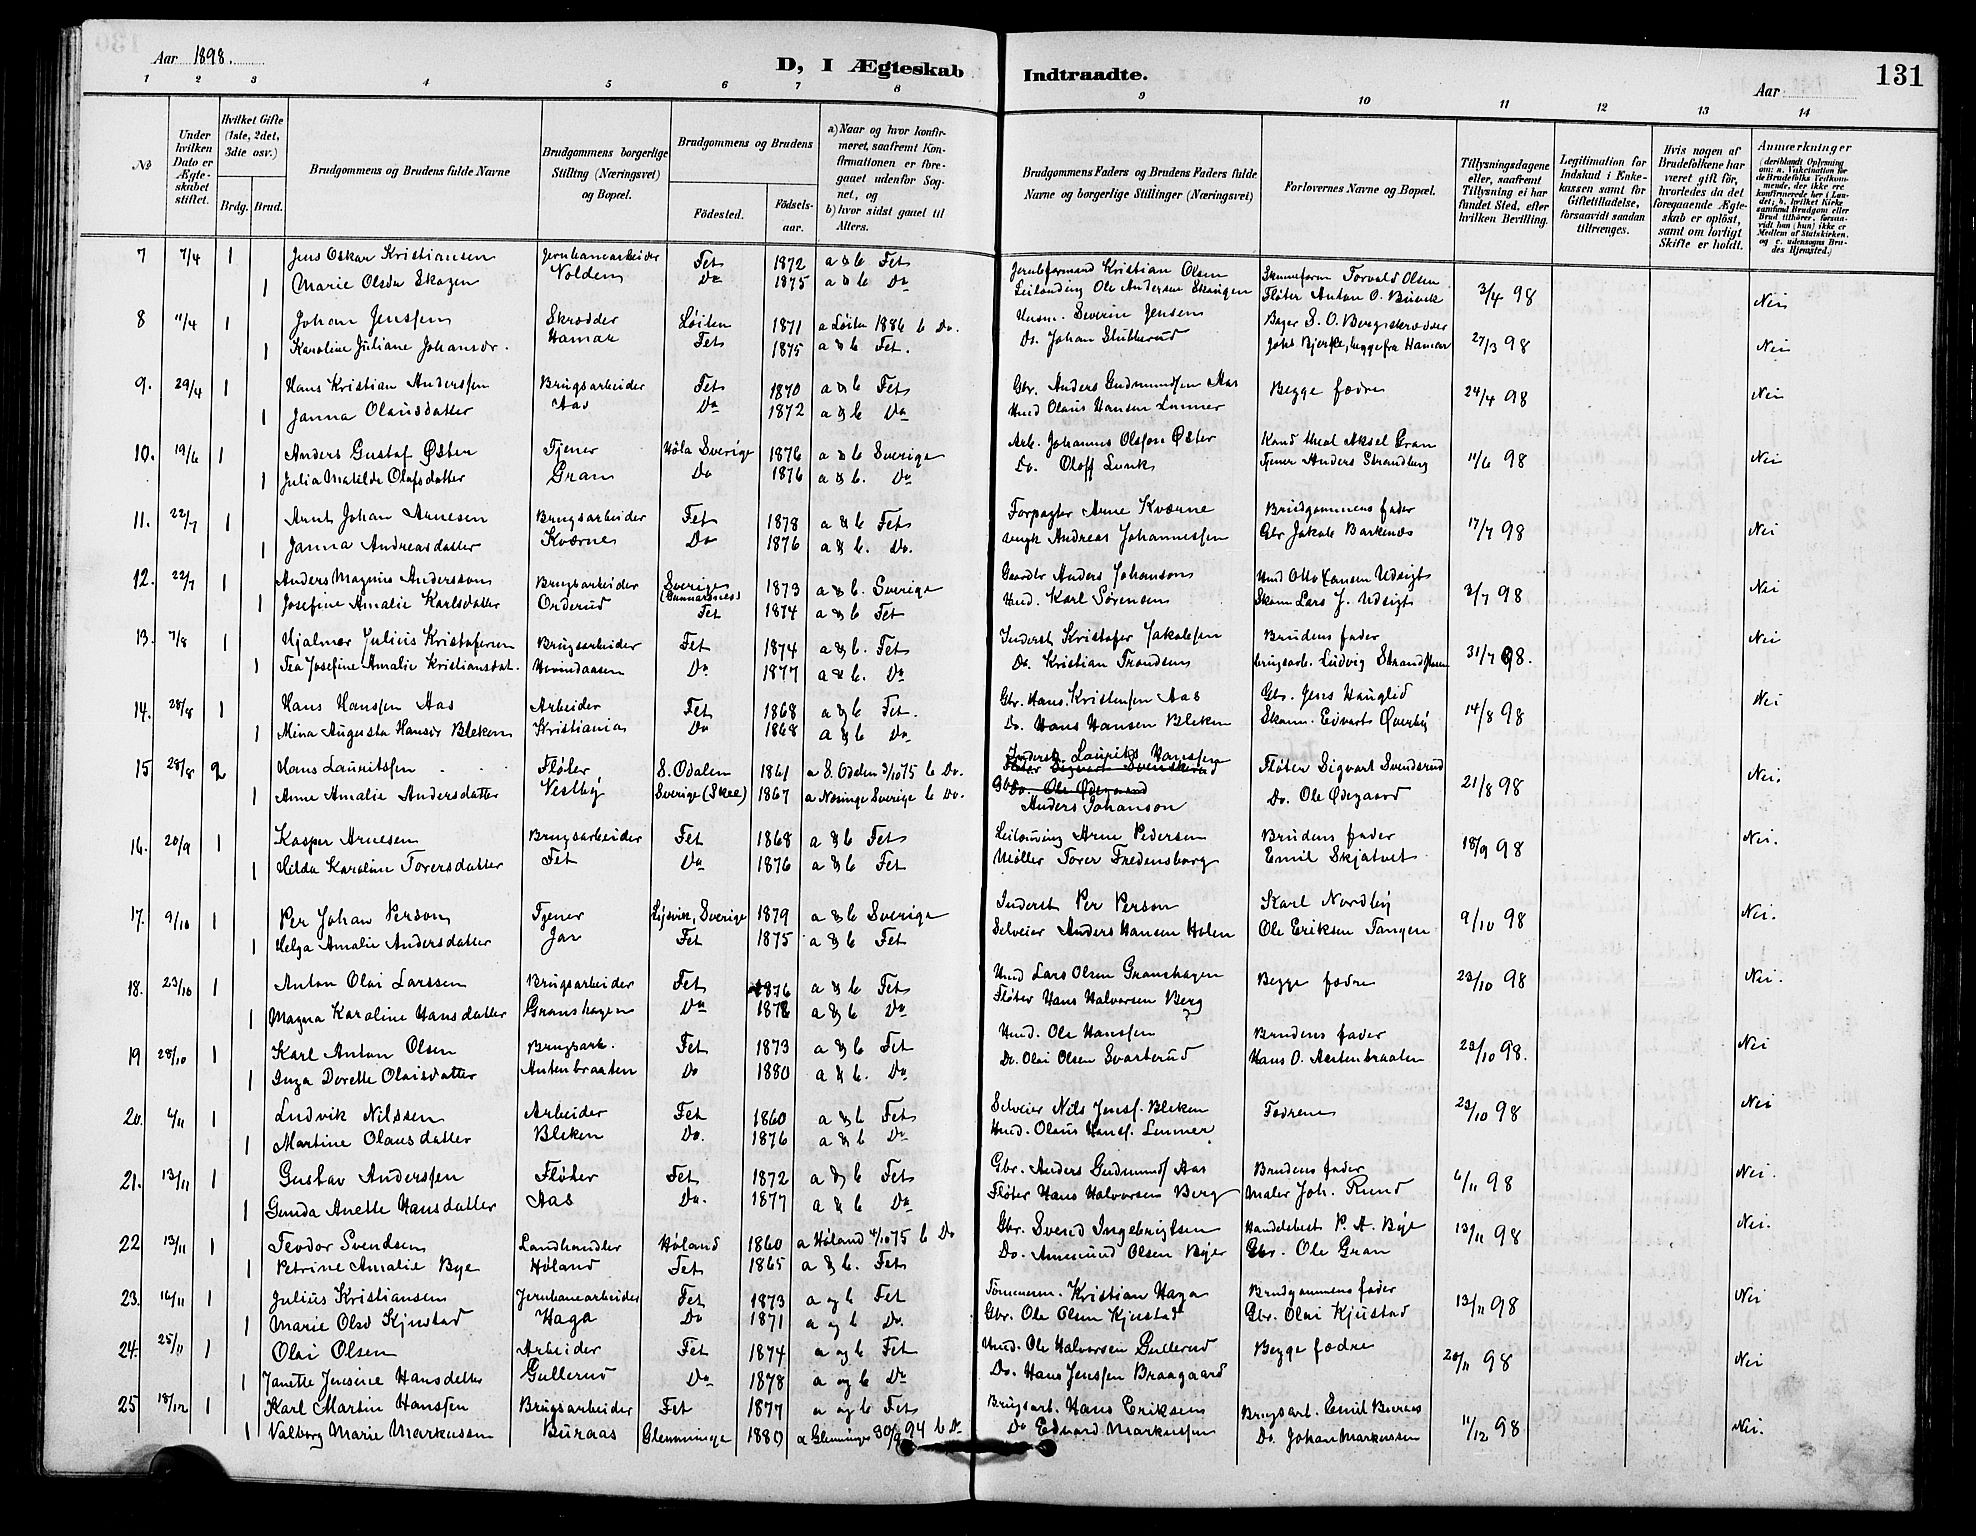 Aar 1898.
D, I Ægteskab Indtraadte.
Aar
131
1 2 3 4 5 6 7 8 9 10 11 12 13 14
No
Under hvilken Dato er Ægteskabet stiftet.
Hvilket Gifte (1ste, 2det, 3die osv.)
Brdg. Brud.
Brudgommens og Brudens fulde Navne
Brudgommens borgerlige Stilling (Næringsvei) og Bopæl.
Brudgommens og Brudens
Fødested.
Fødselsaar.
a) Naar og hvor konfirmeret, saafremt Konfirmationen er foregaaet udenfor Sognet, og
b) hvor sidst gaaet til Alters.
Brudgommens Faders og Brudens Faders fulde Navne og borgerlige Stillinger (Næringsvei)
Forlovernes Navne og Bopæl.
Tillysningsdagene eller, saafremt Tillysning ei har fundet Sted, efter hvilken Bevilling.
Legitimation for Indskud i Enkekassen samt for Giftetilladelse, forsaavidt saadan tiltrænges.
Hvis nogen af Brudefolkene har været gift før, hvorledes da det foregaaende Ægteskab er opløst, samt om lovligt Skifte er holdt.
Anmærkninger (deriblandt Oplysning om: a. Vakcination for de Brudefolks Vedkommende, der ikke ere konfirmerede her i Landet; b. hvilket Kirkesamfund Brudgom eller Brud tilhører, forsaavidt han (hun) ikke er Medlem af Statskirken, og c. udensogns Brudes Hjemsted.)
7 7/4 1 Jens Oskar Kristiansen Jernbanearbeider Fet 1872 a & b Fet Jernbformand Kristian Olsen Torvald Olsen 3/4 98 Nei
1 Marie Olsdr Skogen Nolden Do 1875 a & b Do Leilænding Ole Andersen Skougen Fløter Anton O.
8 11/4 1 Johan Jenssen Skrædder Løiten 1871 a Løiten 1886 b Do. Husm. Severin Jensen Bager S. O. Berg 27/3 98 Nei
1 Karoline Juliane Johansdr. Hamar Fet 1875 a & b Fet. Do. Johan Stubberud Johs Bjerke, begge fra Hamar
9. 29/4 1 Hans Kristian Anderssen Brugsarbeider Fet 1870 a & b Fet Gbr. Anders Gudmundsen Aas Begge fædre 24/4 98 Nei
1 Janna Olausdatter Aas Do 1872 a & b Do Husd Olaus Hansen Linner
10. 19/6 1 Anders Gustaf Øster Tjener Høla Sverige 1876 a & b Sverige Arb. Johannes Olsson Øster Kand theol Aksel Gran 11/6 98 Nei
1 Julia Matilde Olafsdatter Gran Do 1876 a & b. Do Do. Oloff Lunk Tjener Anders Strandberg
11. 22/7 1 Arnt Johan Arnesen Brugsarbeider Fet 1878 a & b Fet Forpagter Arne Kværne Brudgommens fader 17/7 98 Nei
1 Janna Andreasdatter Kværne Do 1876 a & b. Do. Andreas Johannessen Gbr Jakob Barkenæs
12. 22/7 1 Anders Magnus Anderssen Brugsarbeider Sverige (Gunnarsnes) 1873 a & b. Sverige Gaardbr Anders Johanson Husd Otto Hansen Udsigt 3/7 98 Nei
1 Josefine Amalie Karlsdatter Orderud Fet 1874 a & b Fet Husd. Karl Sørensen Skom Lars J. Udsigt
13. 7/8 1 Hjalmar Julius Kristofersen Brugsarbeider Fet 1874 a & b. Fet Inderst Kristofer Jakobsen Brudens fader 31/7 98. Nei
1 Fra Josefine Amalie Kristiansdat. Hovindaasen Do. 1877 a & b. Do Do. Kristian Trondsen brugsarb. Ludvig Strand
14. 28/8 1 Hans Hanssen Aas Arbeider Fet 1868 a & b Fet. Gbr. Hans Kristensen Aas Gbr. Jens Hauglid 14/8 98 Nei
1 Mina Augusta Hansdr Bleken Kristiania Do 1868 a & b Do Do. Hans Hansen Bleken Skom. Edvart Øverby
15 28/8 2 Hans Lauritssen Fløter S. Odalen 1861 a S. Odalen 3/10 75 b Do. Inderst Laurits Hanssen Fløter Sigvart Svendsrud 21/8 98 Nei.
1 Anne Amalie Andersdatter Vestby Sverige (Skee) 1867 a Nosinge Sverige b Do. Anders Johanson Do. Ole Ødegaard
16. 20/9 1 Kasper Arnesen Brugsarbeider Fet 1868 a & b Fet Leilænding Arne Pedersen Brudens fader 18/9 98 Nei.
1 Hilda Karoline Toversdatter Fet Do 1876 a & b Fet Møller Tover Fredensborg Emil Skjatvet
17. 9/10 1 Per Johan Person Tjener Sverige 1879 a & b Sverige Inderst Per Person Karl Nordby 9/10 98 Nei.
1 Helga Amalie Andersdatter Jar Fet 1875 a & b Fet Selveier Anders Hansen Holen Ole Eriksen Tangen
18. 23/10 1 Anton Olai Larssen Brugsarbeider Fet 1876 a & b Fet Husd Lars Olsen Granshagen Begge fædre 23/10 98 Nei.
1 Magna Karoline Hansdatter Granshagen Do 1878 a & b Do Fløter Hans Halvorsen Berg ?
19 28/10 1 Karl Anton Olsen Brugsarb. Fet 1873 a & b Fet Husd. Ole Hanssen Brudens fader 23/10 98. Nei
1 Inga Dorette Olaisdatter Asterbraaten Do 1880 a & b. Do Do. Olai Olsen Svarterud Hans O. Asterbraaten
20. 4/11 1 Ludvik Nilssen Arbeider Fet 1860 a & b Fet Selveier Nils Jenss. Bleken Fædrene 23/10 98 Nei
1 Martine Olausdatter Bleken Do. 1876 a & b Do Husd. Olaus Hanss. Linner
21. 13/11 1 Gustav Anderssen Fløter Fet 1872 a & b Fet Gbr. Anders Gudmunds Aas Brudens fader 6/11 98 Nei.
1 Gunda Anette Hansdatter Aas Do. 1877 a & b Do Fløter Hans Halvorsen Berg Maler Joh. Rund
22 13/11 1 Teodor Svendsen Landhandler Høland 1860 a Høland 4/10 75 b Do Gbr. Svend Ingebrigtsen Handelsbest P. A. Bye 13/11 98 Nei.
1 Petrine Amalie Bye Høland Fet 1865 a & b. Fet Do. Amesund Olsen Byer Gbr. Ole Gran
23. 16/11 1 Julius Kristiansen Jernbanearbeider Fet 1873 a og b Fet Tømmerm. Kristian Haga Brudgommens fader 13/11 98 Nei
1 Marie Olsd Kjustad Haga Do 1871 a og b Do. Gbr. Ole Olsen Kjustad Gbr. Olai Kjustad
24. 25/11 1 Olai Olsen Arbeider Fet 1874 a og b Fet Husd. Ole Halvorsen Gullerud Begge fædre 20/11 98 Nei
1 Janette Jensine Hansdatter Gullerud Do 1878 a og b Do Do. Hans Jenssen Braagaard
25 18/12 1 Karl Martin Hanssen Brugsarbeider Fet 1877 a og b Fet Brugsarb. Hans Eriksen Brugsarb. Emil Buraas 11/12 98 Nei.
1 Valborg Marie Markussen Buraas Glemminge 1880 a Glemminge 30/9 94 b Do Do Edvard Markussen Do. Johan Markussen